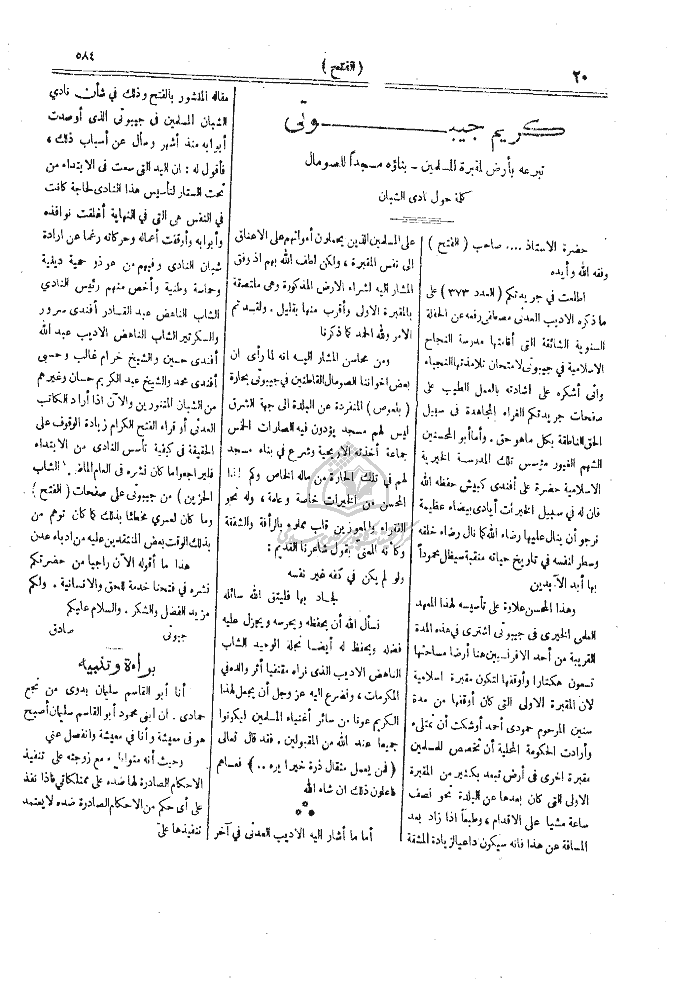 ٢٠
( الفتح )
٥٨٤
كريم جيبوتي
تبرعه بأرض لمقبرة المسلمين - بناؤه مسجداً للصومال
كلمة حول نادى الشبان
حضرة الاستاذ .... صاحب ( الفتح )
وفقه الله وأيده
اطلعت في جريدتكم ( العدد ٣٧٣ ) على
ما ذكره الاديب العدني مصطفى رفعه عن الحفلة
السنوية الشائقة التى أقامتها مدرسة النجاح
الاسلامية في جيبوتى لامتحان تلامذتها النجباء
وانى أشكره على اشادته بالعمل الطيب على
صفحات جريدتكم الغراء المجاهدة في سبيل
الحق الناطقة بكل ماهو حق . وأما أبو المحسنين
الشهم الغيور مؤسس تلك المدرسة الخيرية
الاسلامية حضرة على أفندى كبيش حفظه الله
فان له في سبيل الخيرات أيادى بيضاء عظيمة
نرجو أن ينال عليها رضاء الله كما نال رضاء خلقه
وسطر لنفسه في تاريخ حياته منقبة سيظل محموداً
بها أبد الآبدين
وهذا المحسن علاوة على تأسيسه لهذا المعهد
العلمى الخيرى في جيبوتى اشترى في هذه المدة
القريبة من أحد الافرنسيين هنا أرضا مساحتها
تسعون هكتارا وأوقفها لتكون مقبرة اسلامية
لان المقبرة الاولى التى كان أوقفها من مدة
سنين المرحوم حمودى أحمد أوشكت أن تمتلىء
وأرادت الحكومة المحلية أن تخصص للمسلمين
مقبرة اخرى في أرض تبعد بكثير من المقبرة
الاولى التى كان بعدها عن البلدة نحو نصف
ساعة مشيا على الاقدام ، وطبعاً اذا زاد بعد
المسافة عن هذا فانه سيكون داعيا لزيادة المشقة
على المسلمين الذين يحملون أمواتهم على الاعناق
الى نفس المقبرة ، ولكن لطف الله بهم اذ وفق
المشار اليه لشراء الارض المذكورة وهى ملتصقة
بالمقبرة الاولى وأقرب منها بقليل . ولقد تم
الامر ولله الحمد كما ذكرنا
ومن محاسن المشار اليه انه لما رأى ان
بعض اخواننا الصومال القاطنين في جيبوتى بحارة
( بلعوص ) المنفردة عن البلدة الى جهة الشرق
ليس لهم مسجد يؤدون فيه الصلوات الخمس
جماعة أخذته الاريحية وشرع في بناء مسجد
لهم في تلك الحارة من ماله الخاص وكم لهذا
المحسن من الخيرات خاصة وعامة ، وله نحو
الفقراء والمعوزين قلب مملوء بالرأفة والشفقة
وكأنه المعنى بقول شاعرنا القديم :
ولو لم يكن في كفه غير نفسه
لجاد بها فليتق الله سائله
نسأل الله أن يحفظه ويحرسه ويجزل عليه
فضله ويحفظ له أيضا نجله الوحيد الشاب
الناهض الاديب الذى نراه مقتفيا أثر والده في
المكرمات ، ونضرع اليه عز وجل أن يجعل لهذا
الكريم عونا من سائر أغنياء المسلمين ليكونوا
جميعا عند الله من المقبولين . فقد قال تعالى
( فمن يعمل مثقال ذرة خيرا يره . . ) فعساهم
فاعلون ذلك ان شاء الله
أما ما أشار اليه الاديب العدنى في آخر
مقاله المنشور بالفتح وذلك في شأن نادي
الشبان المسلمين في جيبوتى الذى أوصدت
أبوابه منذ أشهر وسأل عن أسباب ذلك ،
فأقول له : ان اليد التى سعت في الابتداء من
تحت الستار لتأسيس هذا النادى لحاجة كانت
في النفس هى التى في النهاية أغلقت نوافذه
وأبوابه وأوقفت أعماله وحركاته رغما عن ارادة
شبان النادى وفيهم من هو ذو حمية دينية
وحماسة وطنية وأخص منهم رئيس النادي
الشاب الناهض عبد القادر أفندى سرور
والسكرتير الشاب الناهض الاديب عبد الله
أفندى حسين والشيخ خرام غالب وحسبى
أفندى محمد والشيخ عبد الكريم حسان وغيرهم
من الشبان المتنورين والآن اذا أراد الكاتب
العدنى أو قراء الفتح الكرام زيادة الوقوف على
الحقيقة في كيفية تأسس النادى من الابتداء
فليراجعوا ما كان نشره في العام الماضي ( الشاب
الحزين ) من جيبوتى على صفحات ( الفتح )
وما كان لعمرى مخطئا بذلك كما كان توهم من
بذلك الوقت بعض المنتقدين عليه من ادباء عدن
هذا ما أقوله الآن راجيا من حضرتكم
نشره في فتحنا خدمة للحق والانسانية . ولكم
مزيد الفضل والشكر . والسلام عليكم
جيبوتى صادق
براءة وتنبيه
أنا أبو القاسم سليمان بدوى من نجع
حمادى . ان ابنى محمود أبو القاسم سليمان أصبح
هو في معيشة وأنا في معيشة وانفصل عني
وحيث أنه متواطىء مع زوجته على تنفيذ
الاحكام الصادرة لها ضده على ممتلكاتي فاذا نفذ
على أى حكم من الاحكام الصادرة ضده لا يعتمد
تنفيذها على